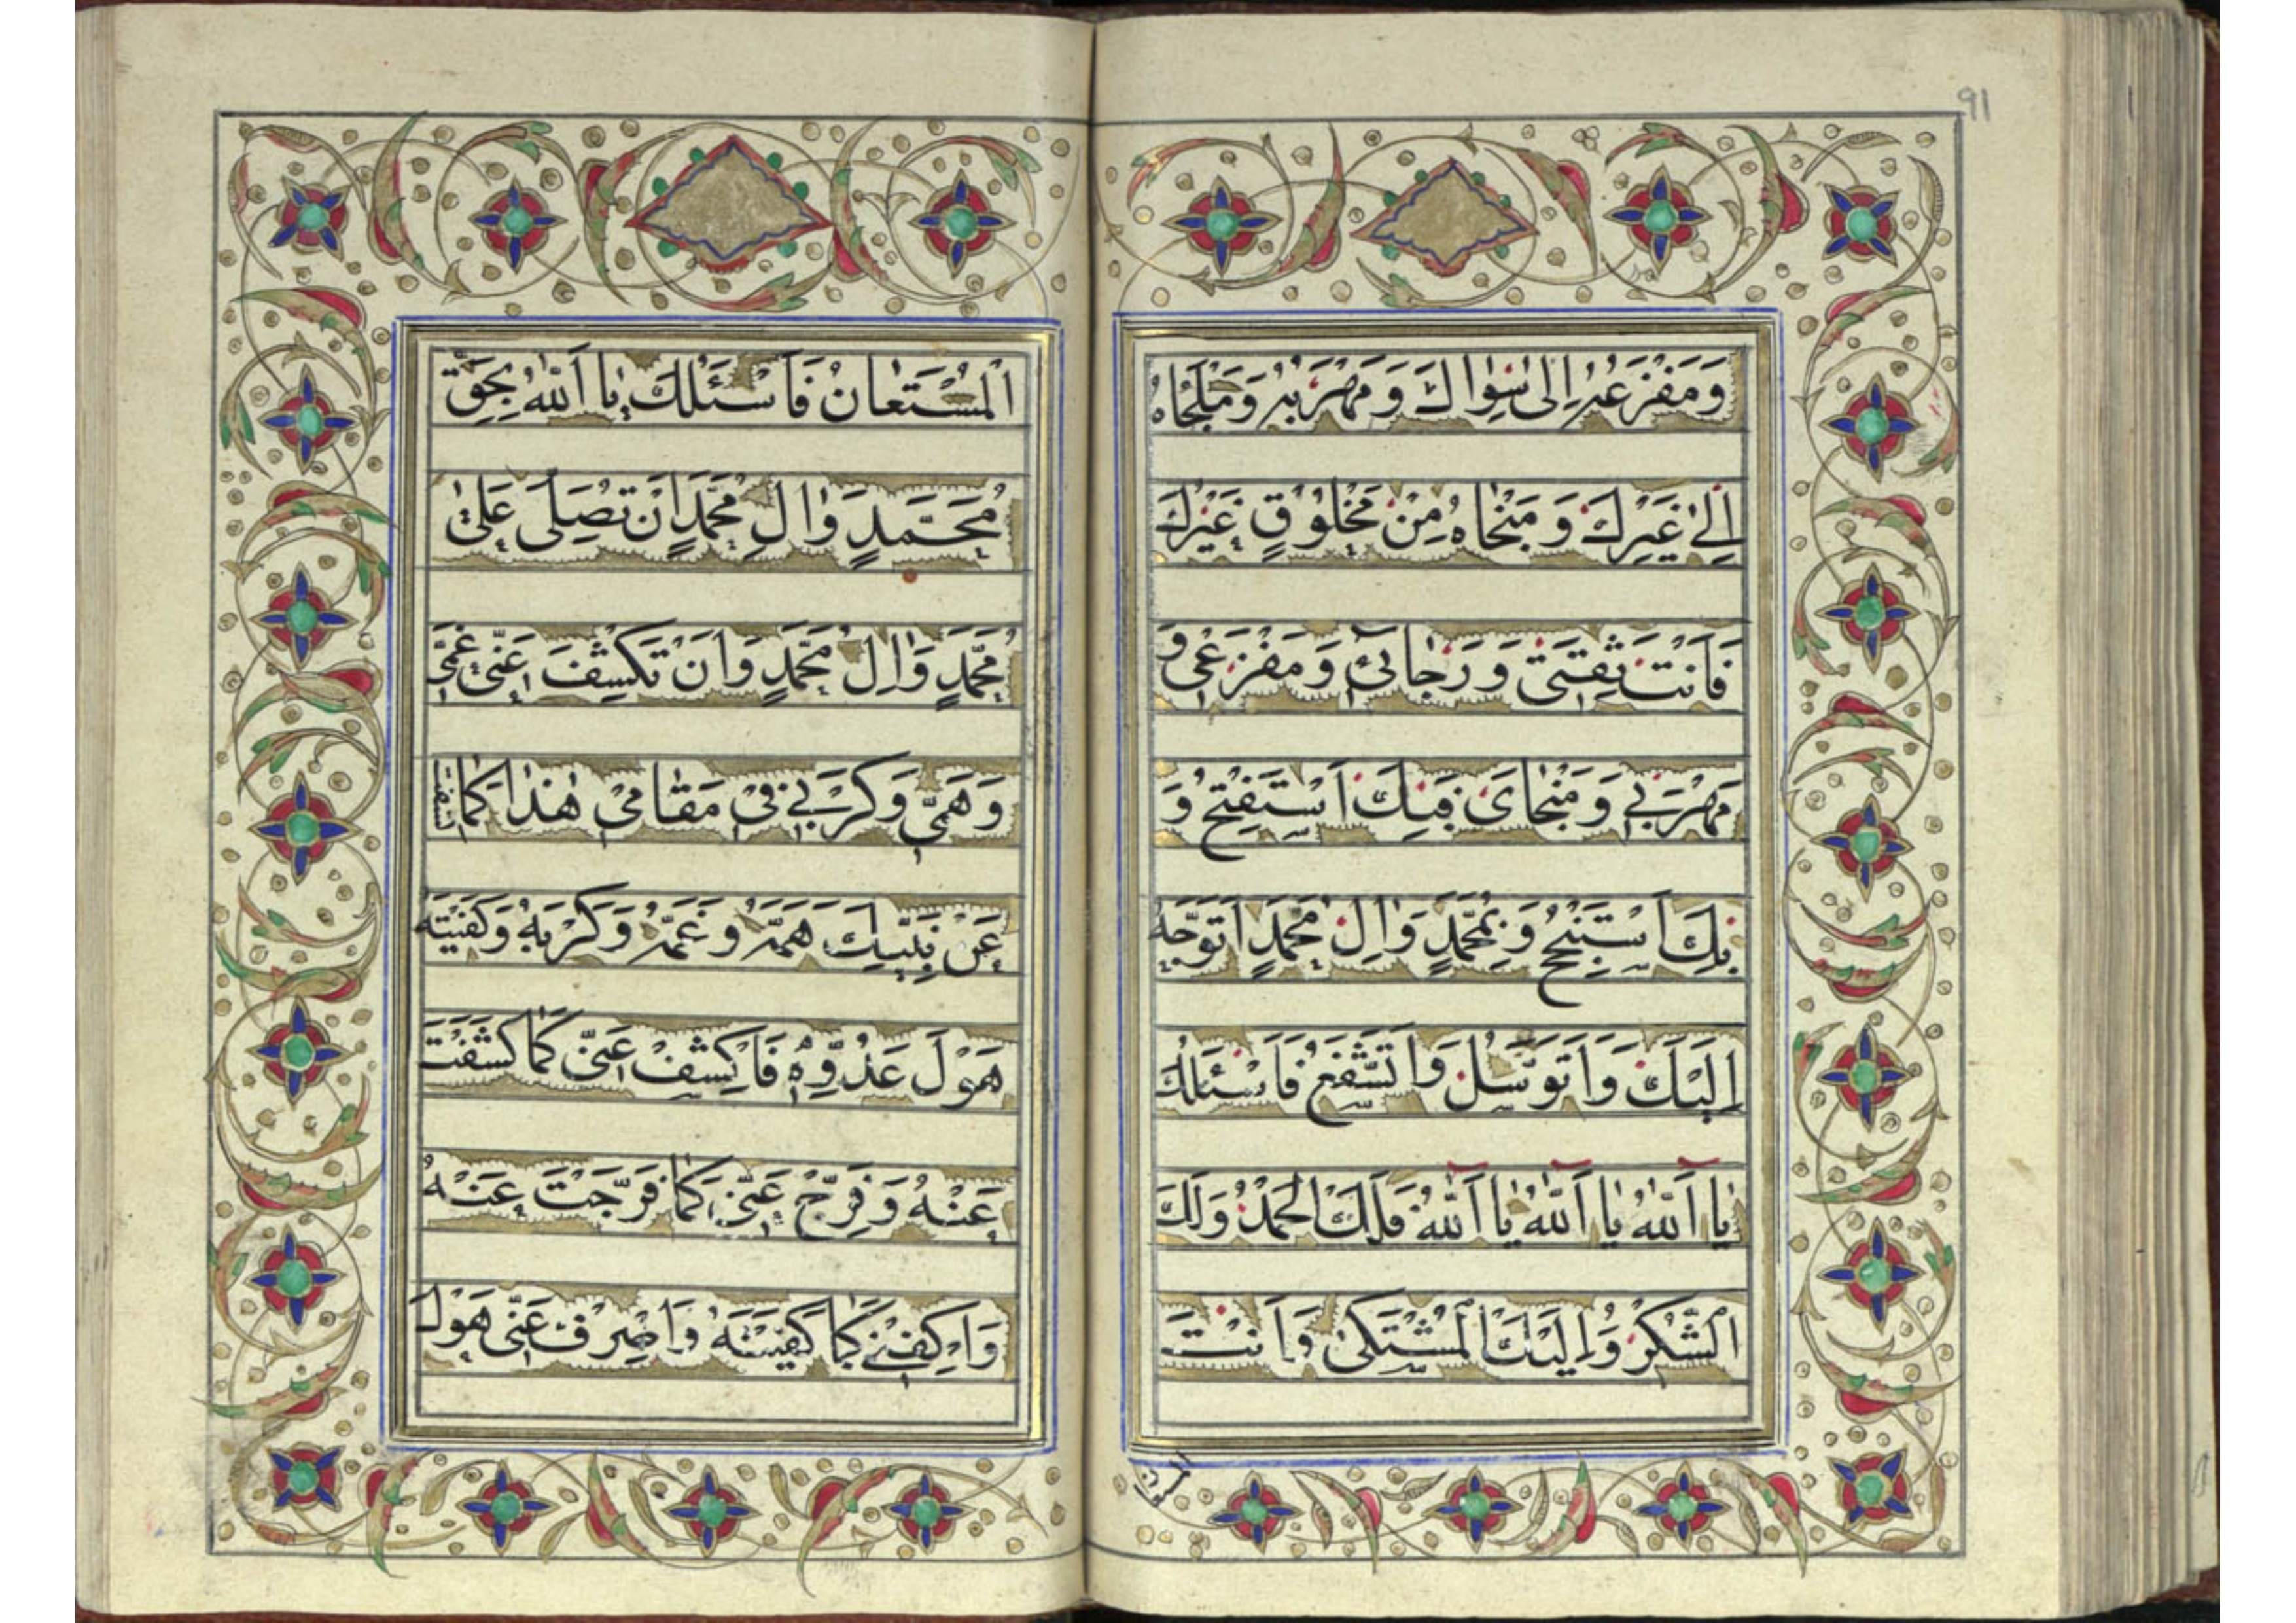 91
وَمَفْزَعُهُ اِلٰى سِوٰاكَ وَمَهْرَبُهُ وَمَلْجَاهُ
اِلىٰ غَيْرِكَ وَمَنْجٰاهُ مِنْ مَخْلُوقٍ غَيْرِكَ
فَاَنْتَ ثِقَتى وَرَجٰائى وَمَفْزَعى وَ
مَهْرَبى وَمَنْجٰاىَ فَبِكَ اَسْتَفْتِحُ وَ
بِكَ اَسْتَنْجِحُ وَبِمُحَمَّدٍ وَاٰلِ مُحَمَّدٍ اَتَوَجَّهُ
اِلَيْكَ وَاَتَوَسَّلُ وَاَتَشَفَّعُ فَاَسْئَلُكَ
يٰا اَللّٰهُ يٰا اَللّٰهُ يٰا اَللّٰهُ فَلَكَ الْحَمْدُ وَلَكَ
الشُّكْرُ وَاِلَيْكَ الْمُشْتَكىٰ وَاَنْتَ
المستعان
الْمُسْتَعٰانُ فَاَسْئَلُكَ يٰا اَللّٰهُ بِحَقِّ
مُحَمَّدٍ وَاٰلِ مُحَمَّدٍ اَنْ تُصَلِّىَ عَلىٰ
مُحَمَّدٍ وَاٰلِ مُحَمَّدٍ وَاَنْ تَكْشِفَ عَنّى غَمّى
وَهَمّى وَكَرْبى فى مَقٰامى هٰذٰا كَمٰا كَشَفْتَ
عَنْ نَبِيِّكَ هَمَّهُ وَغَمَّهُ وَكَرْبَهُ وَكَفَيْتَهُ
هَوْلَ عَدُوِّهِ فَاكْشِفْ عَنّى كَمٰا كَشَفْتَ
عَنْهُ وَفَرِّجْ عَنّى كَمٰا فَرَّجْتَ عَنْهُ
وَاكْفِنى كَمٰا كَفَيْتَهُ وَاصْرِفْ عَنّى هَوْلَ